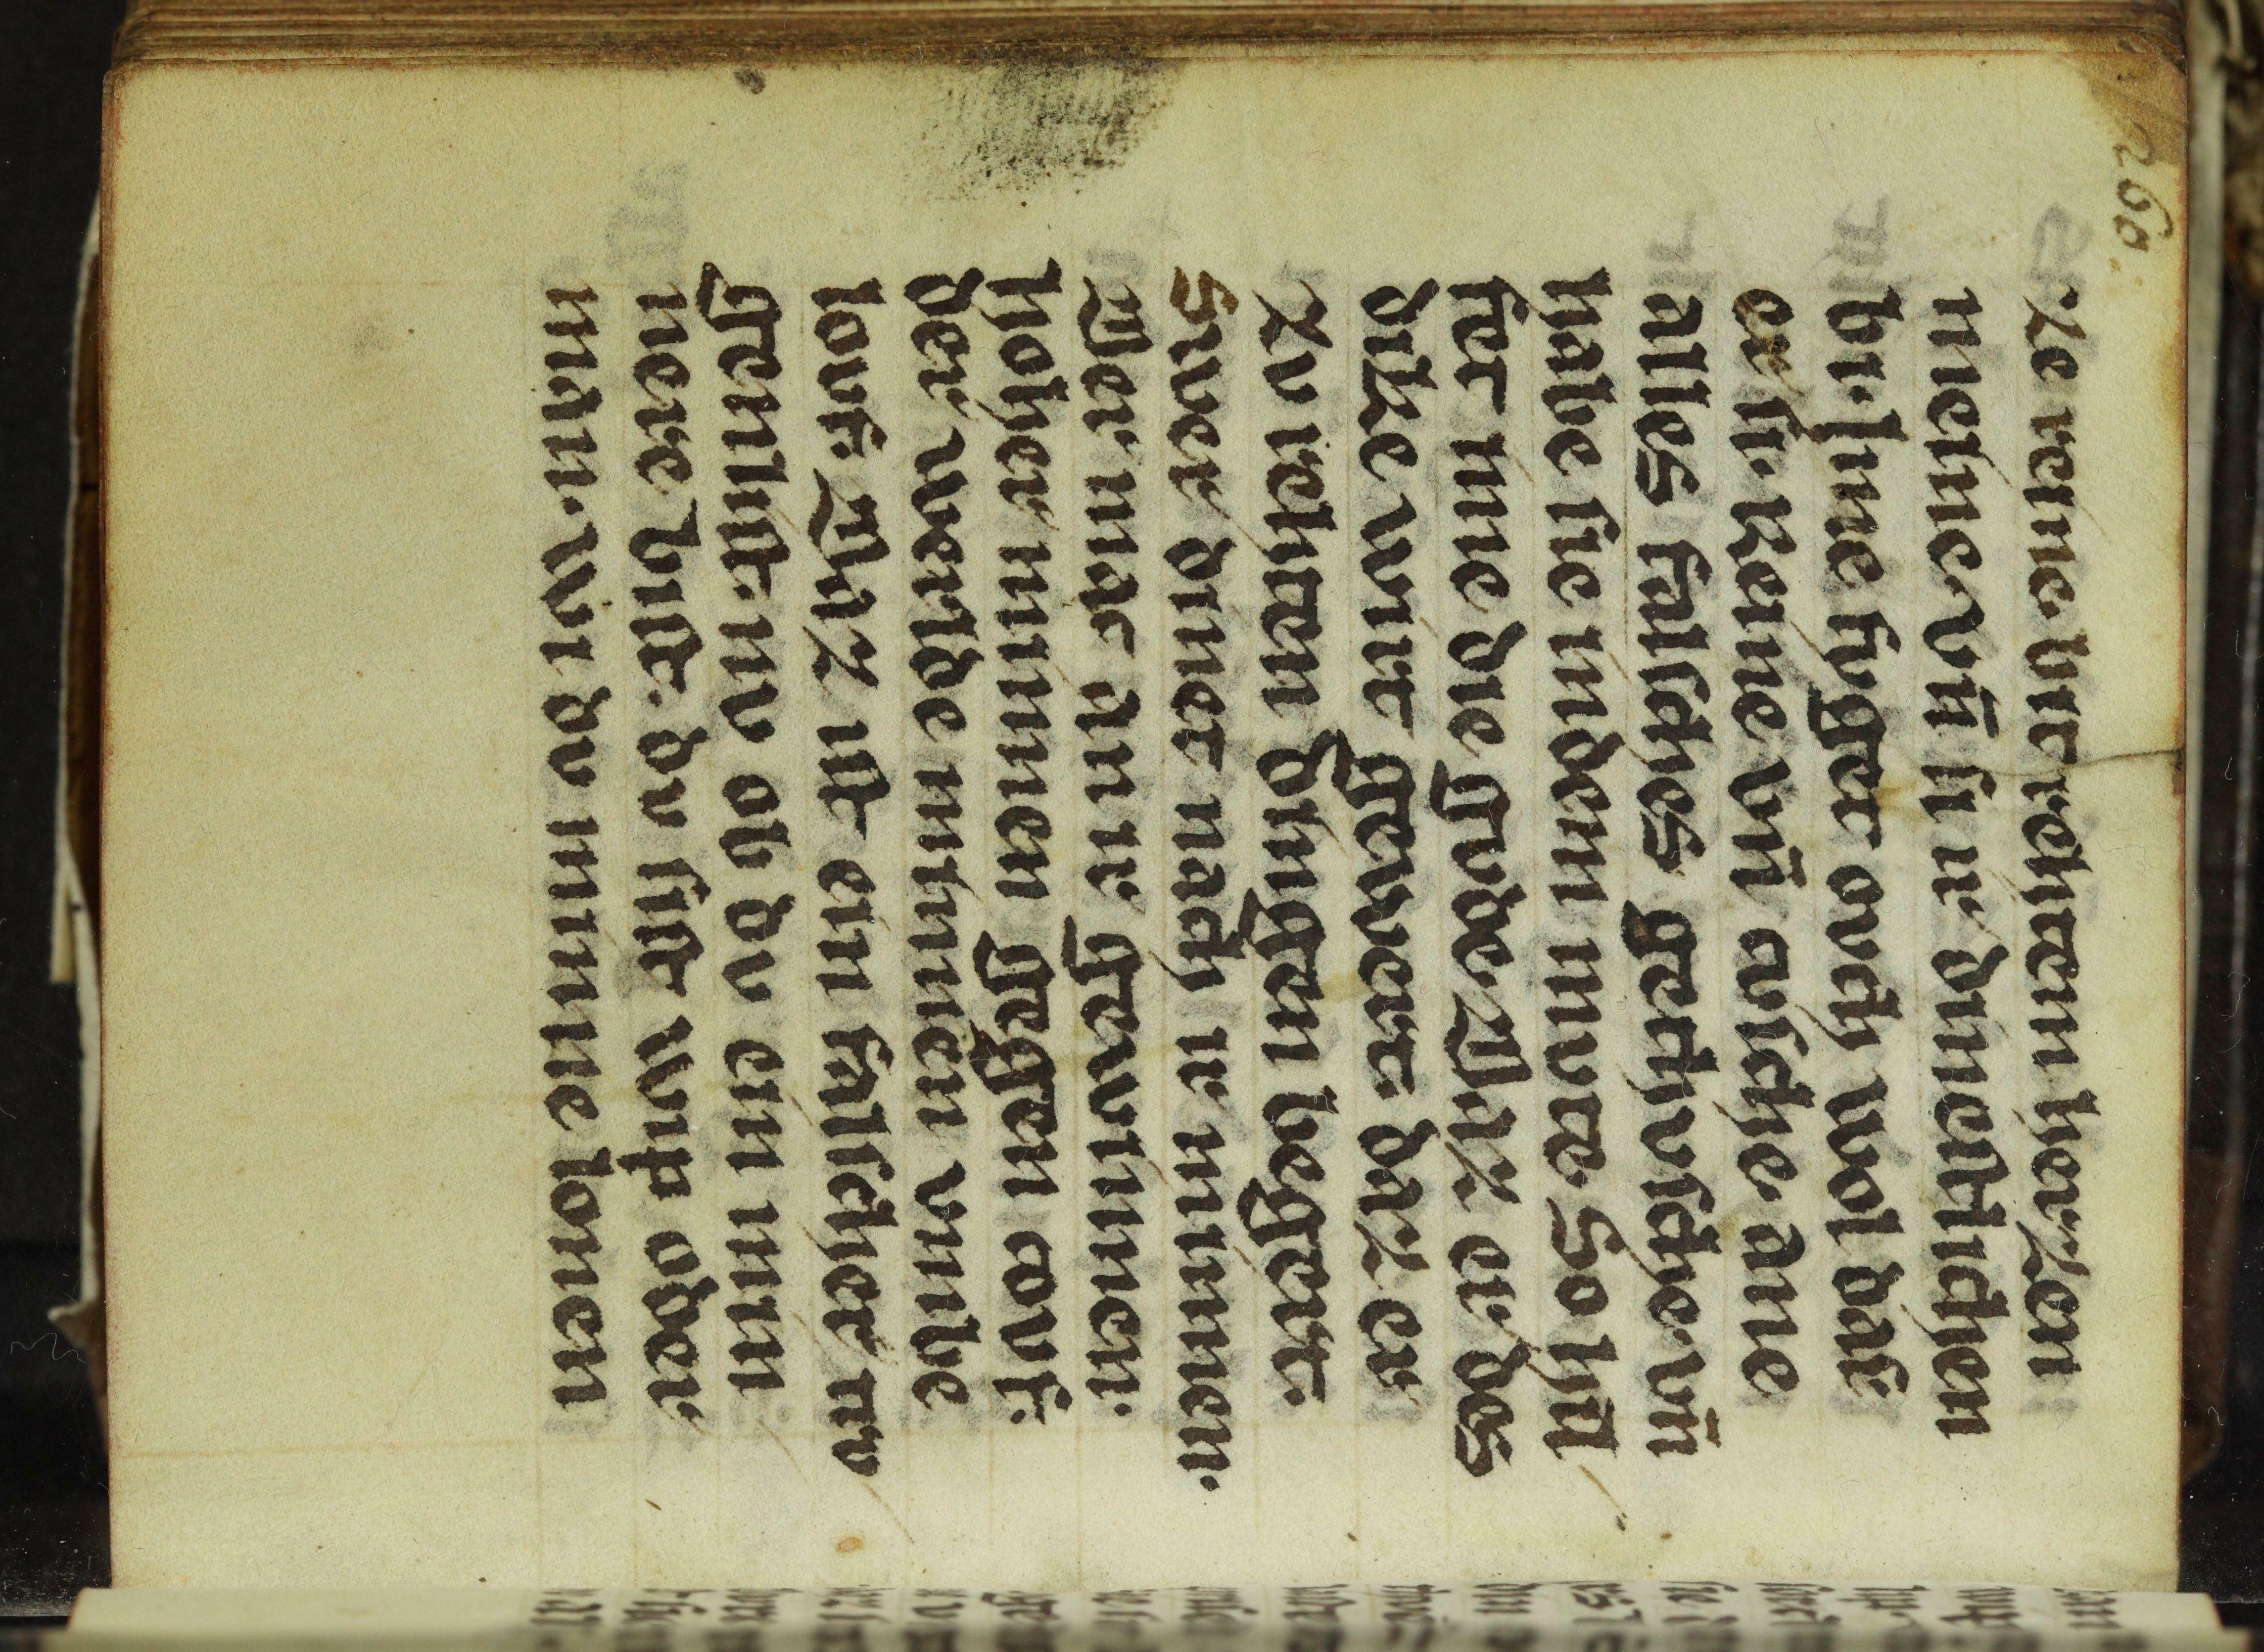 ze reine. bit rehtem herzen
meine. vn̄ si ir dinestlichen
bi. sine svger ovch wol daſ
er si. reine vn̄ cvsche. ane
alles falsches getvsche. vn̄
habe sie indem mvte. So hil
fet ime die gvde. Waz er des
dike wirt gewert. daz er
zv rehten dingen begert.
Swer dinet nach ir minnen.
Wer mac an ir gewinnen.
hoher minnen gegen covf.
der werlde minnen vmbe
lovf. Waz ist ein falscher trv
genlist. nv ob dv ein min
ner bist. dv sist wip oder
man. wi dv minne lonen
260.